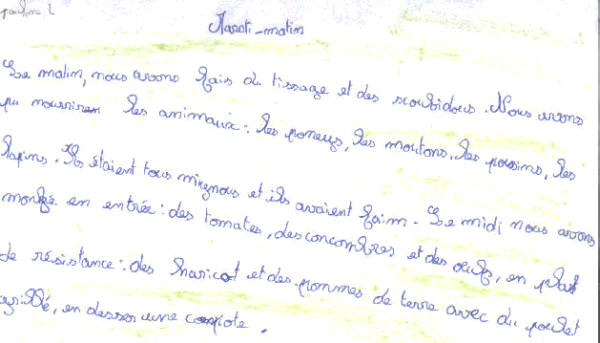 Mardi-matin
Le matin, nous avons fais du tissage et des scoubidous. Nous avons
pu nourrirem les animaux : les poneys, les moutons, les poussins, les
lapins. Ils étaient tous mingnous et ils avaient faim. Le midi nous avons
mangé en entrée : des tomates, des concombres et des oeufs, en plat
de résistance : des haricot et des pommes de terre avec du poulet
grillé, en desser une compote.